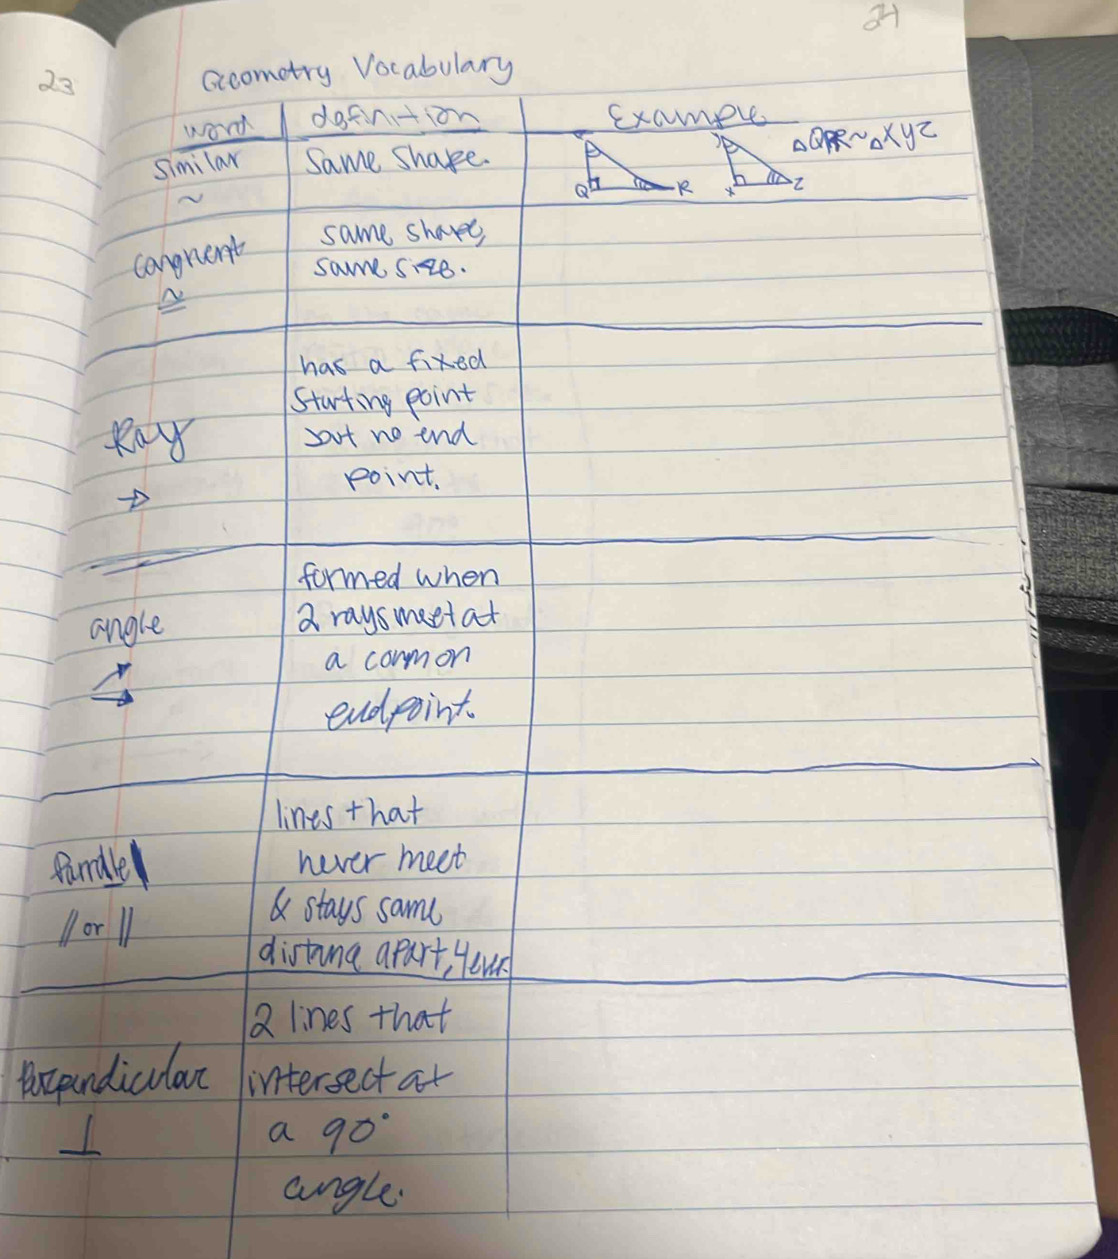 23
24
Geometry Vocabulary
word definition Example
Similar Same Shape.
~
Q R X Z
△XYZ
same shape,
same size.
≅
has a fixed
Starting point
Ray but no end
point.
→
formed when
angle 2 rays meet at
a common
endpoint.
lines that
Parallel never meet
// or || & stays same
distance apart, 4ever
2 lines that
Perpendicular intersect at
⊥ a 90°
angle.